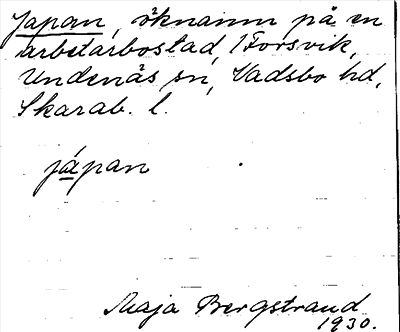 Japan, öknamn på en
arbetarbostad, i Forsvik,
Undenäs sn, Vadsbo hd,
Skarab. l.
jápan
Maja Bergstrand
1930.